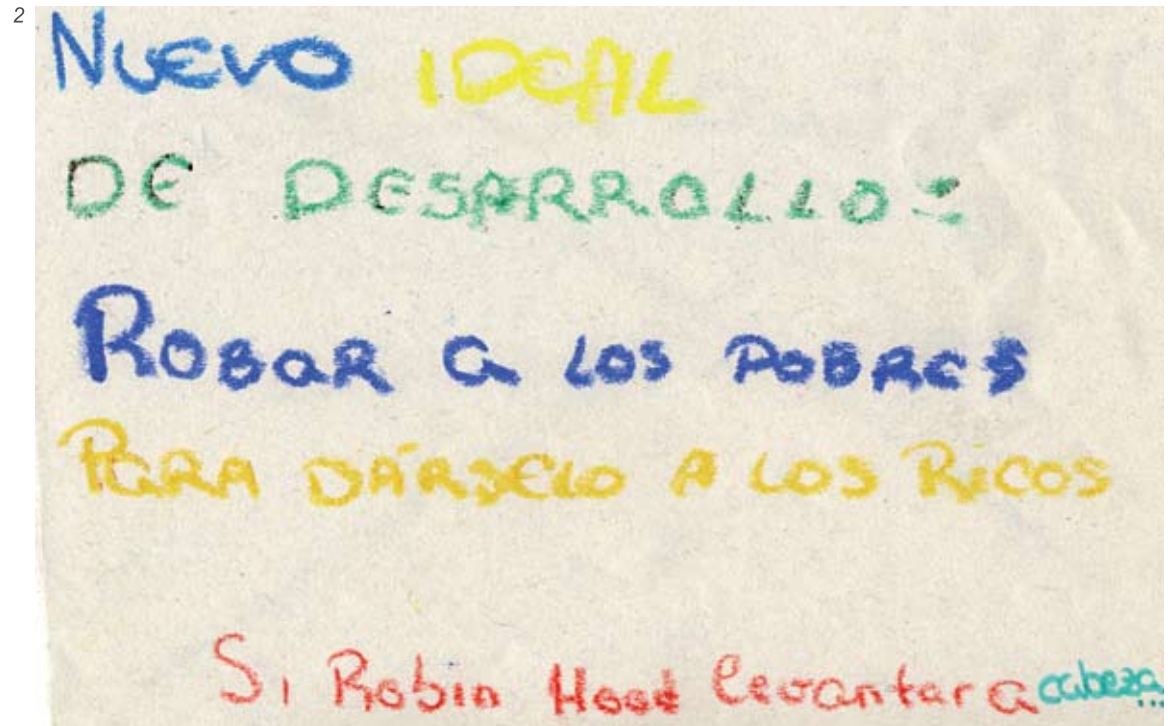 2
NUEVO IDEAL
DE DESARROLLO:
ROBAR a LOS POBRES
PARA DÁRSELO A LOS RICOS
Si Robin Hood levantara cabeza...